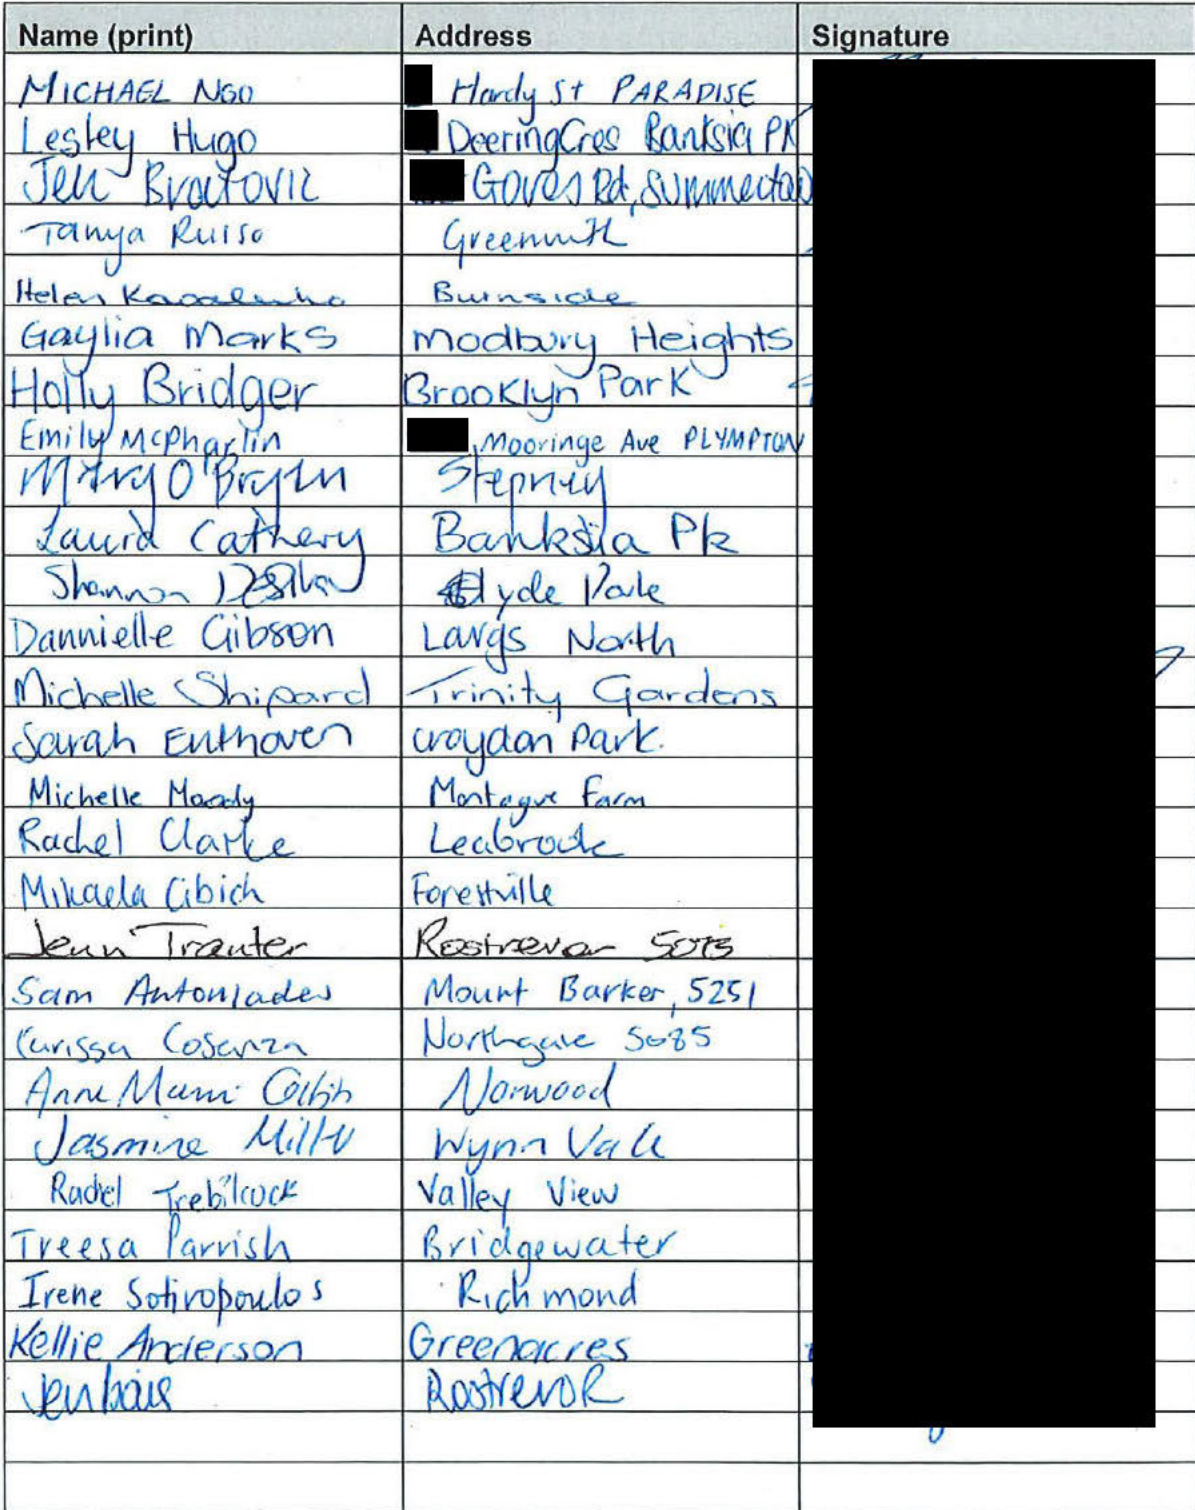 Name (print) Address Signature
MICHAEL NGO Hardy St PARADISE
Lesley Hugo Deering Cres Banksia PK
Jen Bratovic Goves Rd, Summertown
Tanya Russo Greenwith
Helen Burnside
Gaylia Marks Modbury Heights
Holly Bridger Brooklyn Park
Emily McPharlin , Mooringe Ave PLYMPTON
Mary O'Bryan Stepney
Laura Cathery Banksia Pk
Shannon Clyde Park
Dannielle Gibson Largs North
Michelle Shipard Trinity Gardens
Sarah Enthoven croydon Park.
Michelle Moody Montague Farm
Rachel Clarke Leabrook
Mikaela Cibich Forestville
Jenn Tranter Rostrevor 5073
Sam Antoniades Mount Barker, 5251
Carissa Cosenza Northgate 5085
Anne Marie Norwood
Jasmine Miller Wynn Vale
Rachel Trebilcock Valley View
Treesa Parrish Bridgewater
Irene Sotiropoulos Richmond
Kellie Anderson Greenacres
Jen RostrevoR